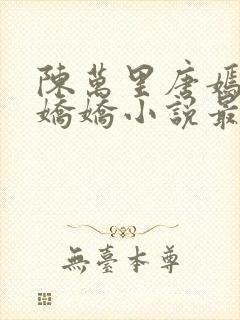 陳萬里唐嫣
嬌嬌小說最
無臺本尊